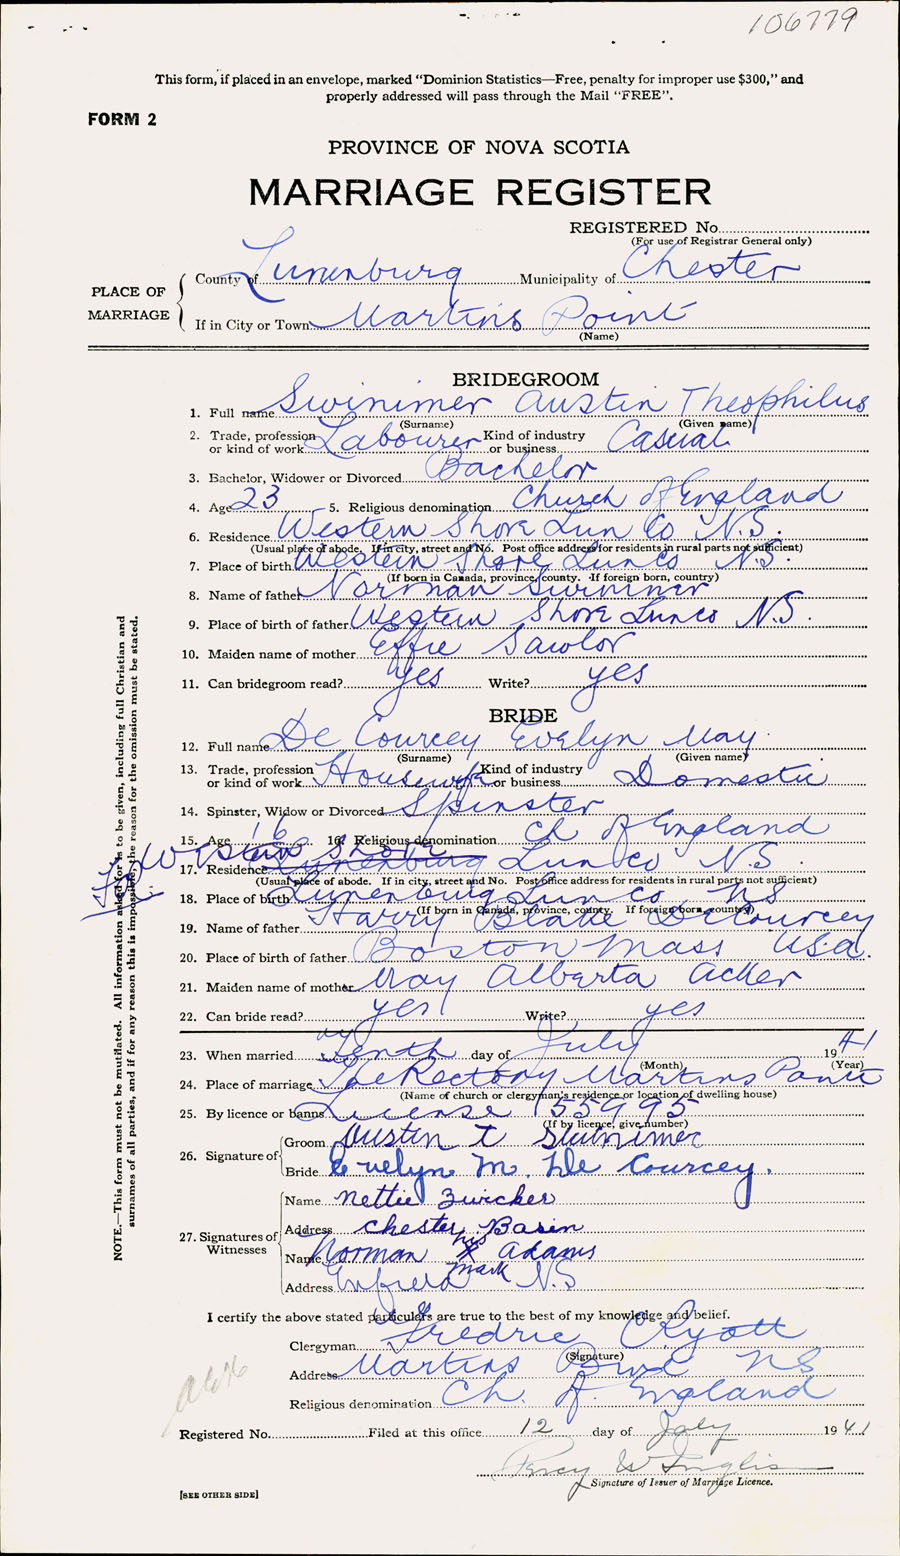 106779
This form, if placed in an envelope, marked "Dominion Statistics—Free, penalty for improper use $300," and
properly addressed will pass through the Mail "FREE".
FORM 2
PROVINCE OF NOVA SCOTIA
MARRIAGE REGISTER
REGISTERED No.
(For use of Registrar General only)
PLACE OF MARRIAGE
County of Lunenburg Municipality of Chester
If in City or Town Martins Point
(Name)
BRIDEGROOM
1. Full name Swinimer Austin Theophilus
(Surname) (Given name)
2. Trade, profession or kind of work Labourer Kind of industry or business Casual
3. Bachelor, Widower or Divorced Bachelor
4. Age 23 5. Religious denomination Church of England
6. Residence Western Shore Lun Co N.S.
(Usual place of abode. If in city, street and No. Post office address for residents in rural parts not sufficient)
7. Place of birth Western Shore Lun co N.S.
(If born in Canada, province, county. If foreign born, country)
8. Name of father Norman Swinimer
9. Place of birth of father Western Shore Lun co N.S.
10. Maiden name of mother Effie Sawlor
11. Can bridegroom read? yes Write? yes
BRIDE
12. Full name De Courcey Evelyn May
(Surname) (Given name)
13. Trade, profession or kind of work Housewife Kind of industry or business Domestic
14. Spinster, Widow or Divorced Spinster
15. Age 16 16. Religious denomination Ch of England
Western Shore
17. Residence Lunenburg Lun co N.S.
(Usual place of abode. If in city, street and No. Post office address for residents in rural parts not sufficient)
18. Place of birth Lunenburg Lun co NS
(If born in Canada, province, county. If foreign born, country)
19. Name of father Harry Blake DeCourcey
20. Place of birth of father Boston Mass U.S.a.
21. Maiden name of mother May Alberta Acker
22. Can bride read? yes Write? yes
23. When married Tenth day of July 1941
(Month) (Year)
24. Place of marriage The Rectory Martins Point
(Name of church or clergyman's residence or location of dwelling house)
25. By licence or banns License 155995
(If by licence, give number)
26. Signature of
Groom Austin T Swinimer
Bride Evelyn M. De Courcey.
27. Signatures of Witnesses
Name Nettie Zwicker
Address Chester Basin
Name Norman his X mark Adams
Address Enfield N.S
I certify the above stated particulars are true to the best of my knowledge and belief.
Clergyman Fredric Ryott
(Signature)
Address Martins NS
Religious denomination Ch. of England
Registered No. Filed at this office 12 day of July 1941
Percy W Inglis
Signature of Issuer of Marriage Licence.
[SEE OTHER SIDE]
NOTE.—This form must not be mutilated. All information asked for is to be given, including full Christian and
surnames of all parties, and if for any reason this is impossible, the reason for the omission must be stated.